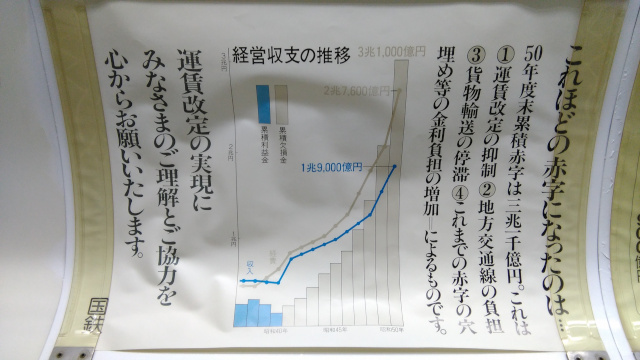 これほどの赤字になったのは…
50年度末累積赤字は三兆一千億円。これは
①運賃改定の抑制②地方交通線の負担
③貨物輸送の停滞④これまでの赤字の穴
埋め等の金利負担の増加—によるものです。
経営収支の推移
3兆1,000億円
3兆円
2兆7,600億円
累積利益金
累積欠損金
2兆円
1兆9,000億円
1兆円
収入
昭和40年
昭和45年
昭和50年
運賃改定の実現に
みなさまのご理解とご協力を
心からお願いいたします。
国鉄